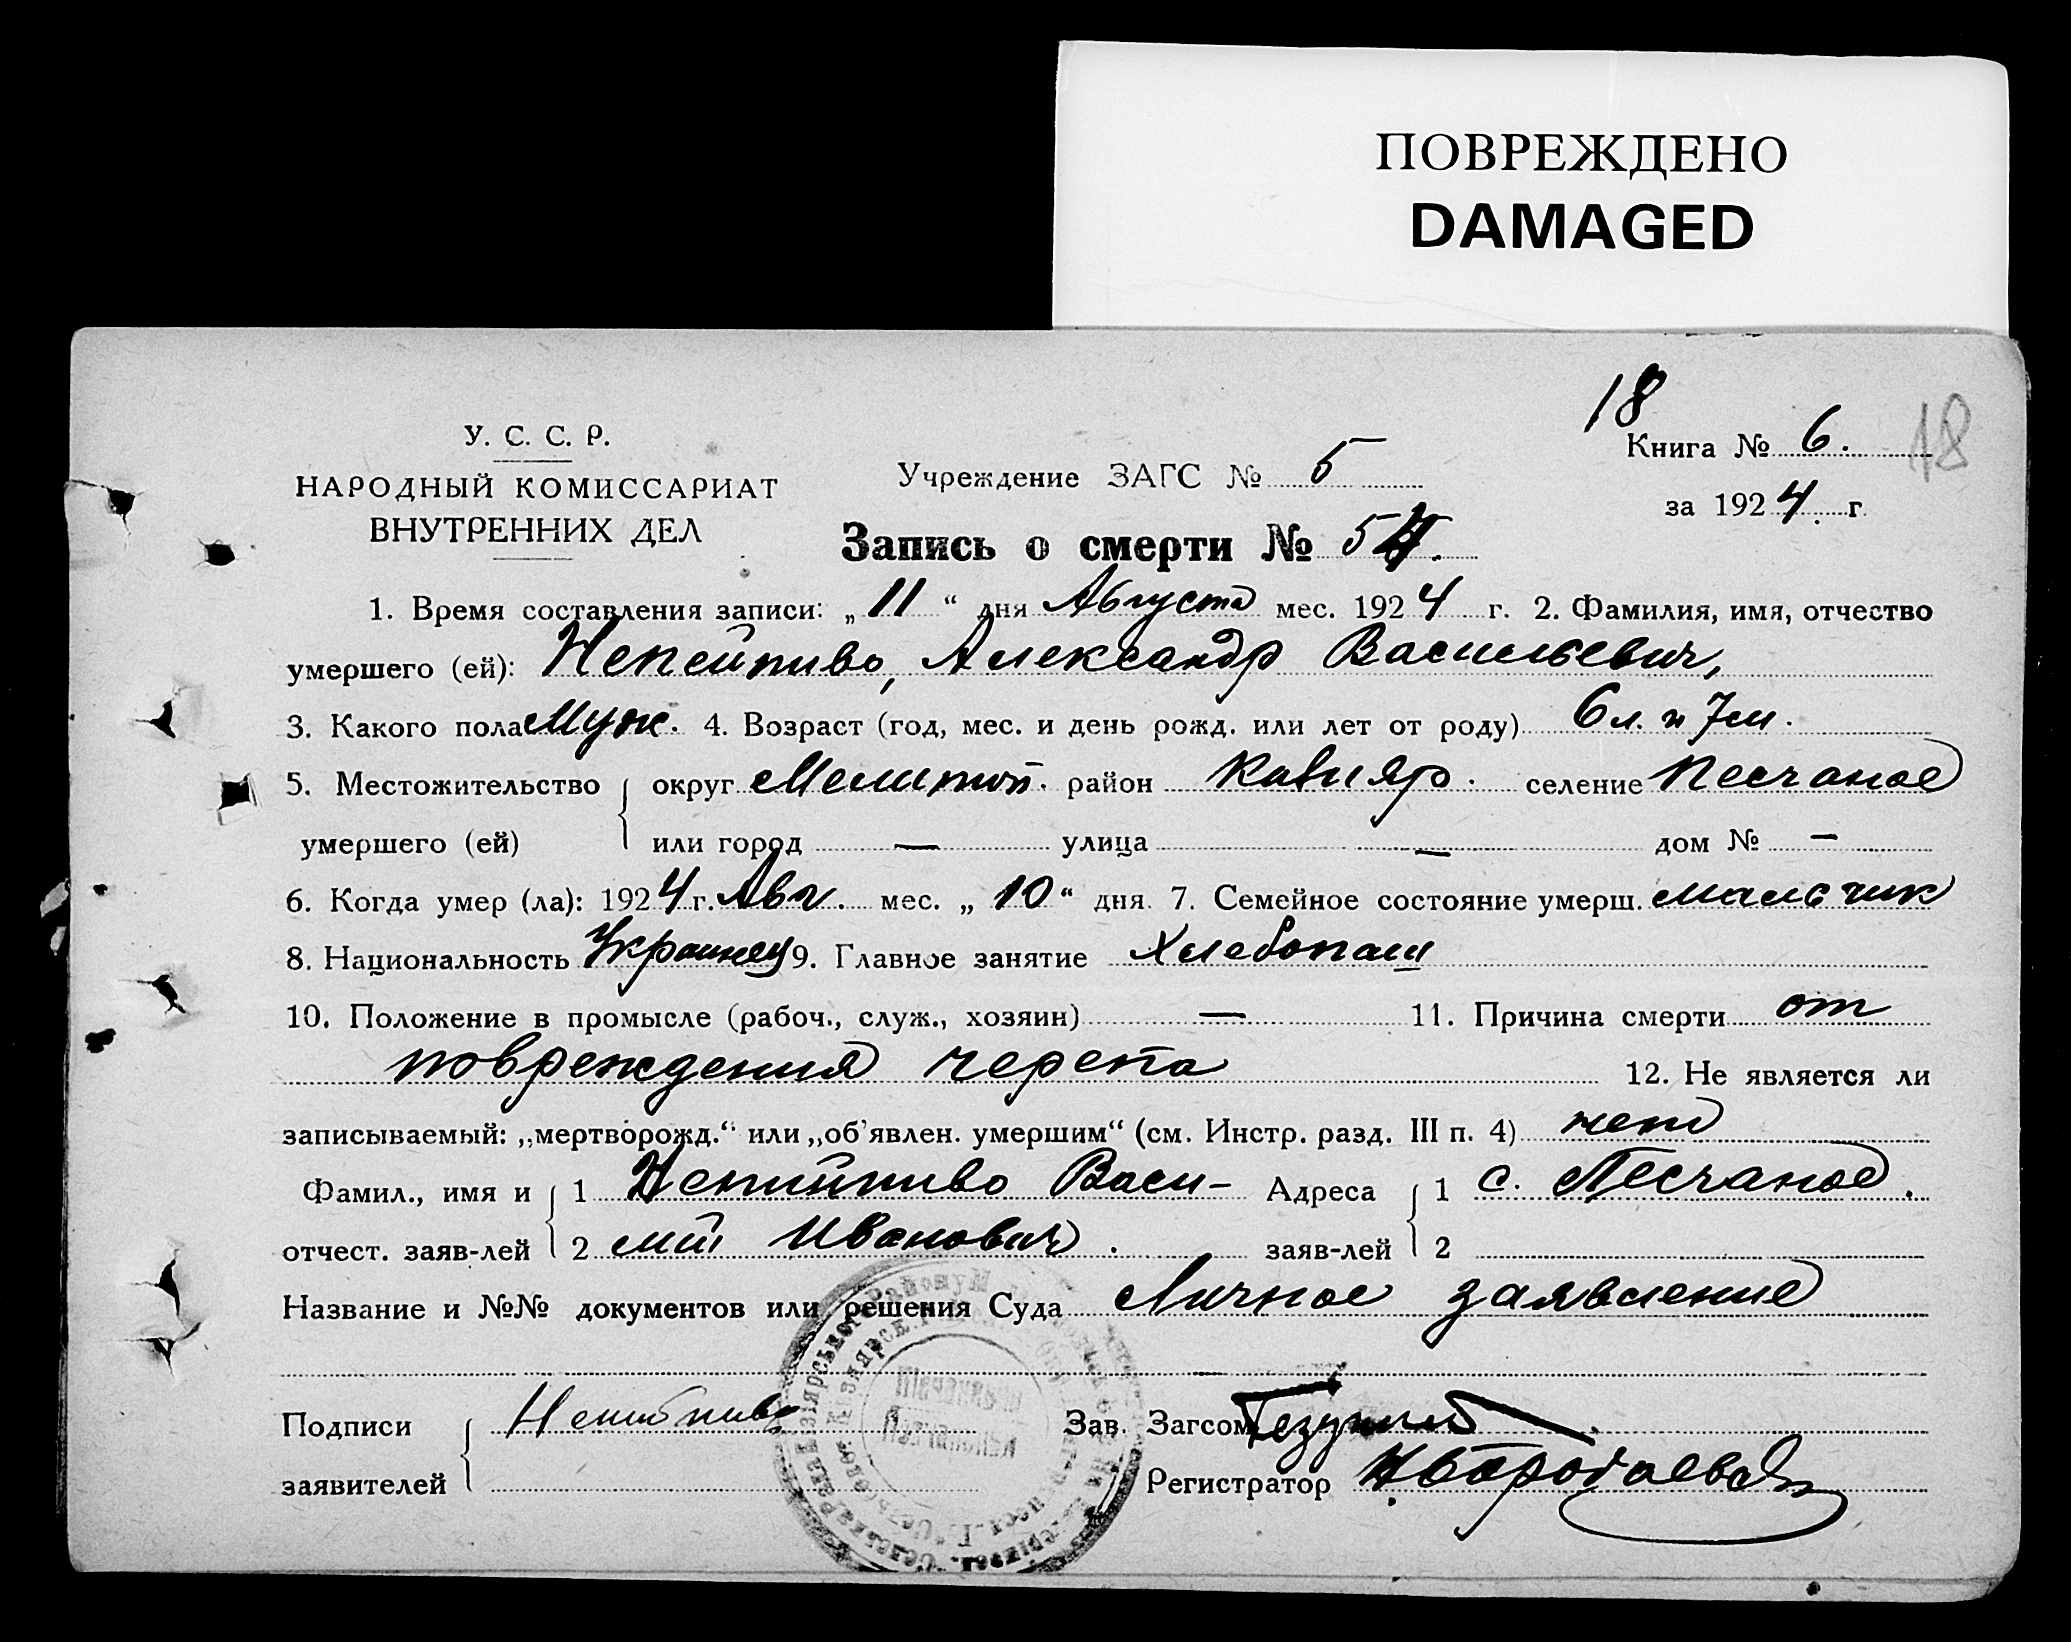 ПОВРЕЖДЕНО
DAMAGED
18
У. С. С. Р.
НАРОДНЫЙ КОМИССАРИАТ
ВНУТРЕННИХ ДЕЛ
Учреждение ЗАГС № 5
Книга № 6.
18
за 1924 г.
Запись о смерти № 54.
1. Время составления записи: „11“ дня Августа мес. 1924 г. 2. Фамилия, имя, отчество
умершего (ей): Непейпиво, Александр Васильевич,
3. Какого пола Муж. 4. Возраст (год, мес. и день рожд. или лет от роду) 6 л. и 7 м.
5. Местожительство округ Мелитоп. район Кизияр. селение Песчаное
умершего (ей) или город — улица — дом № —
6. Когда умер (ла): 1924 г. Авг. мес. „10“ дня. 7. Семейное состояние умерш. мальчик
8. Национальность Украинец 9. Главное занятие Хлебопаш
10. Положение в промысле (рабоч., служ., хозяин) — 11. Причина смерти от
повреждения черепа 12. Не является ли
записываемый: „мертворожд.“ или „об'явлен. умершим“ (см. Инстр. разд. III п. 4) нет
Фамил., имя и 1 Непийпиво Васи- Адреса 1 с. Песчаное.
отчест. заяв-лей 2 лий Иванович. заяв-лей 2
Название и №№ документов или решения Суда Личное заявление
Подписи Непийпиво Зав. Загсом
заявителей Регистратор